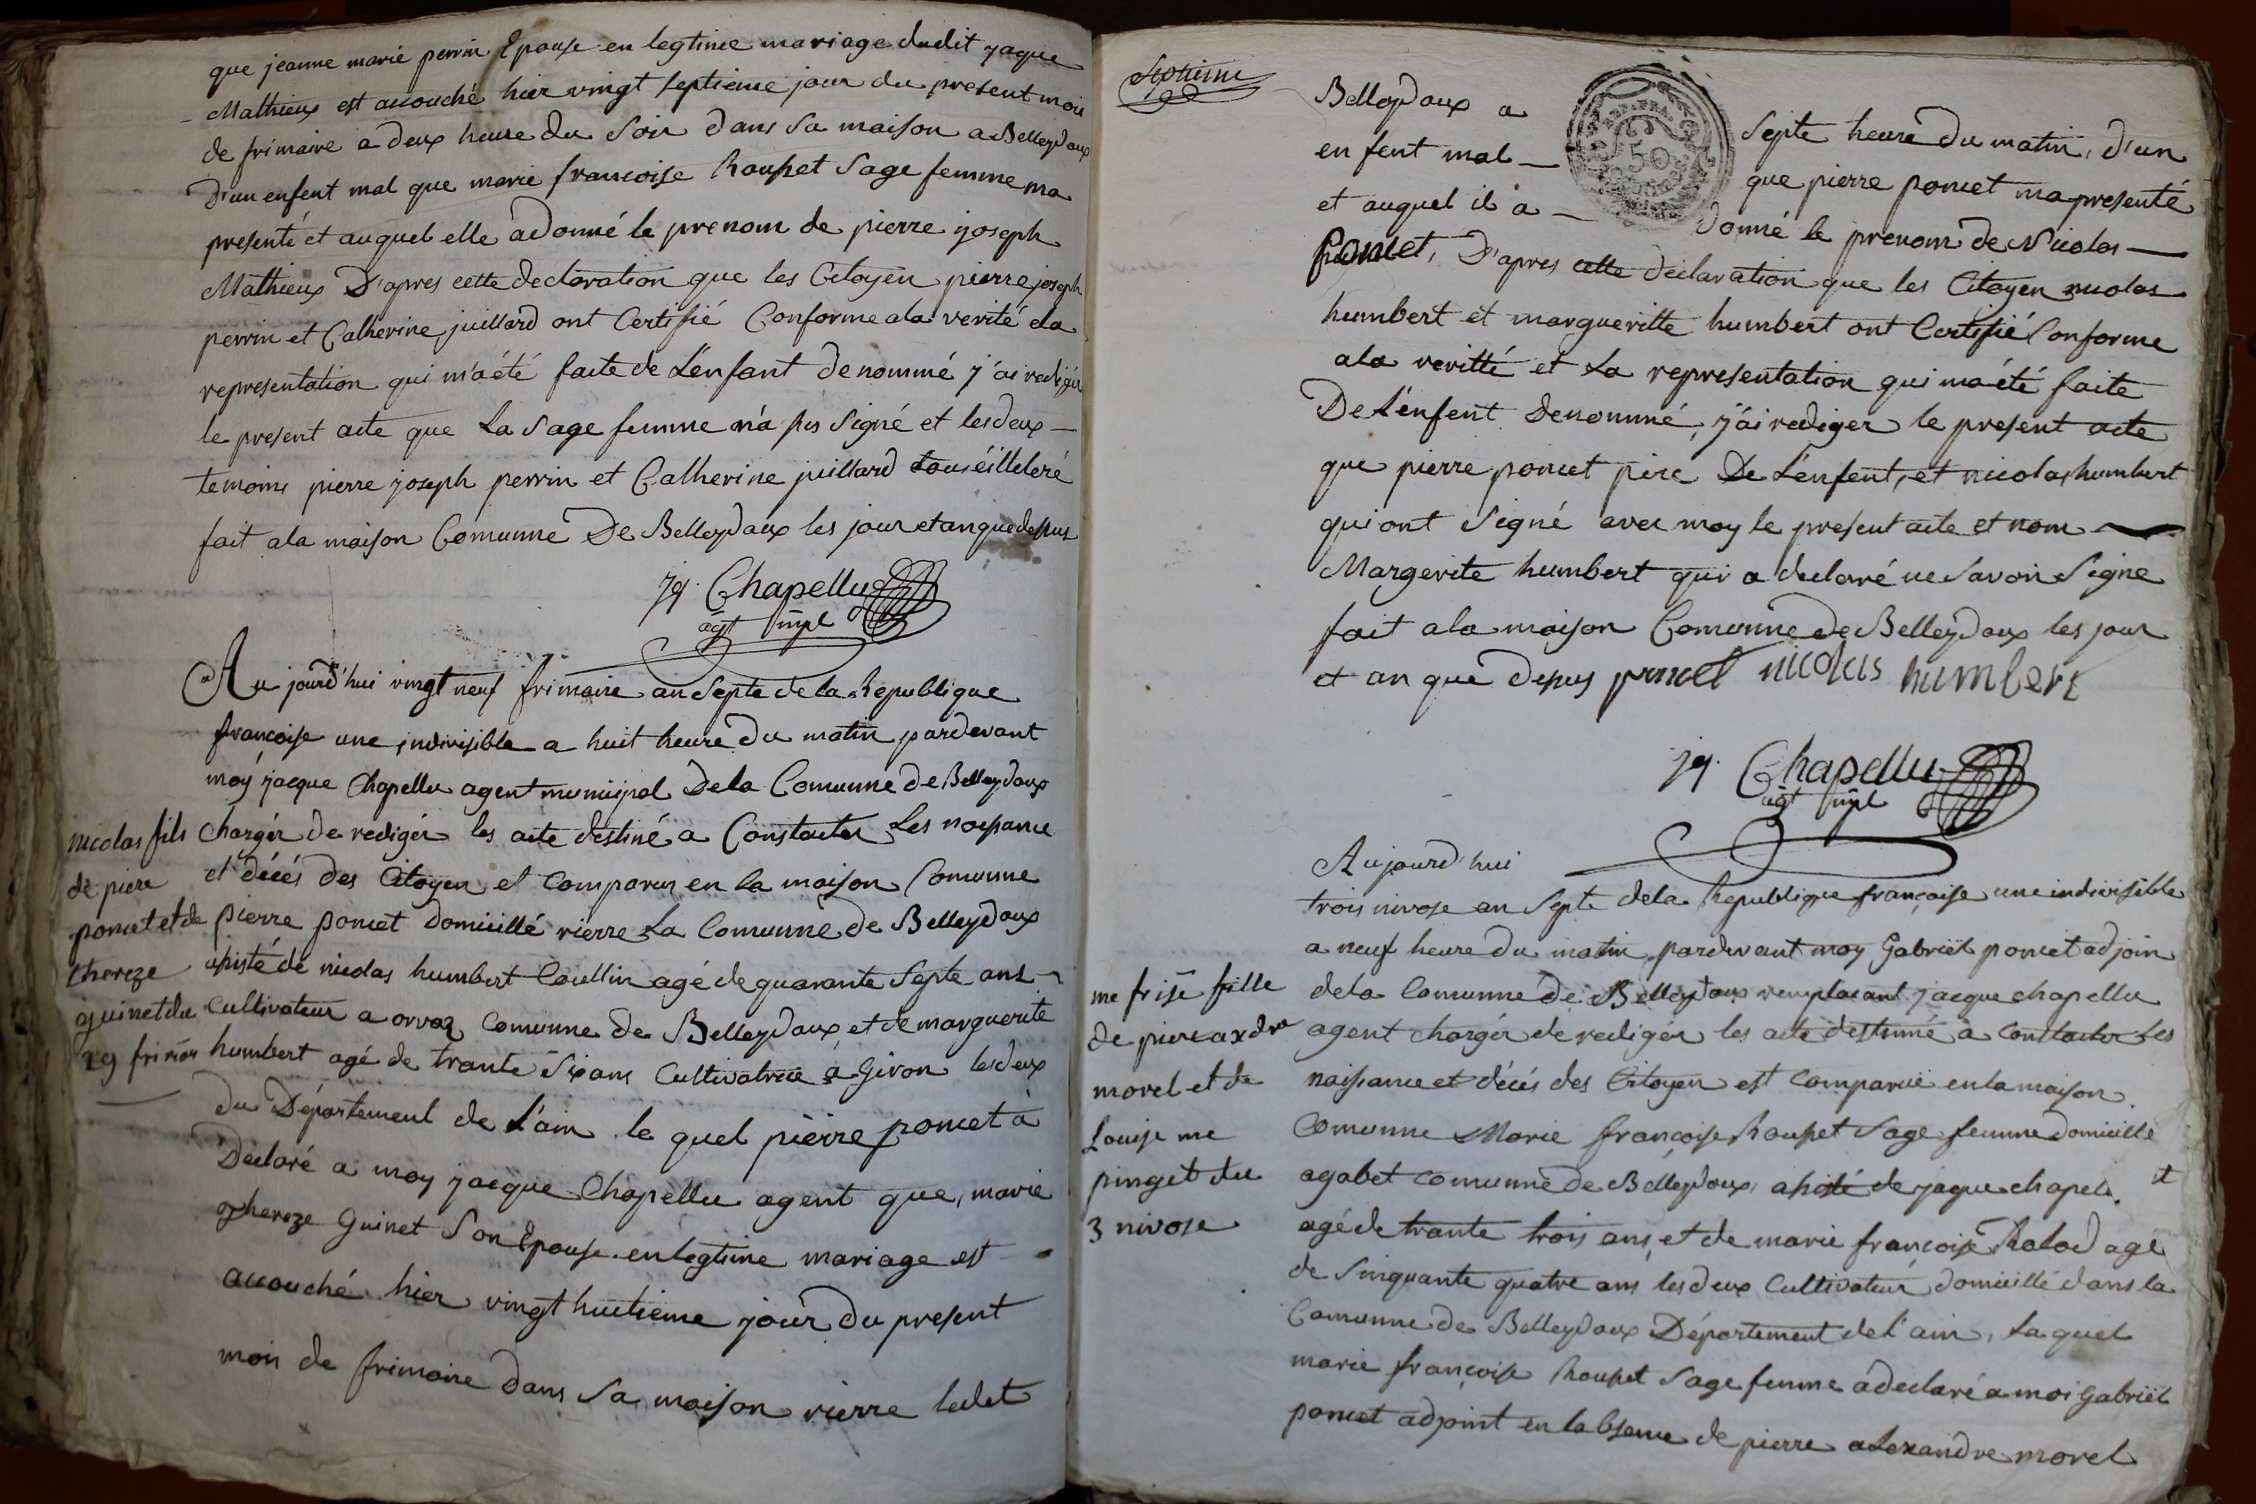 que jeanne marie perrin Epouse en legtime mariage dudit jaque
Mathieux est accouché hier vingt septieme jour du present mois
de frimaire a deux heure du soir dans sa maison a Belleydoux
D'un enfent mal que marie francoise Rouphet Sage femme ma
presenté et auquel elle a donné le prenom de pierre joseph
Mathieux D'apres cette declaration que les Citoyen pierre joseph
perrin et Catherine juillard ont Certifié Conforme a la verité et la
representation qui m'a été faite de L'enfant denommé j'ai redigér
le present acte que La Sage femme n'a pas Signé et les deux
temoins pierre joseph perrin et Catherine juillard
fait a la maison Comunne De Belleydoux les jour et an que depus
jq. Chapellu
agt mpl
Au jourd'hui vingt neuf frimaire an Septe de la Republique
francoise une indivisible a huit heure Du matin pardevant
moy jacque Chapellu agent municipal De la Comunne de Belleydoux
chargér de redigér les acte destiné a Constacter Les naissance
et décés des Citoyen et Comparus en la maison Comunne
pierre poncet domicillé rierre La Comunne de Belleydoux
apisté de nicolas humbert Coullin agé de quarante Septe ans
Cultivateur a orvaz Comunne de Belleydoux, et de marguerite
humbert agé de trante Six ans Cultivatrice a Giron les deux
du Département de L'ain le quel pierre poncet à
Declaré a moy jacque Chapellu agent que, marie
thereze Guinet Son Epouse en legtime mariage est
accouché hier vingt huitieme jour Du present
mois de frimaire Dans Sa maison rierre ledit
nicolas fils
de piere
poncet et de
thereze
guinet du
29 frimer
Septieme
Belleydoux a Septe heure Du matin, D'un
enfent mal que pierre poncet ma presenté
et auquel il a donné le prenom De Nicolas
Poncet, D'apres cette declaration que les Citoyen nicolas
humbert et margueritte humbert ont Certifié Conforme
a la veritté et La representation qui ma été faite
De L'enfent Denommé, j'ai rediger le present acte
que pierre poncet pere De L'enfent, et nicolas humbert
qui ont Signé avec moy le present acte et nom
Margerite humbert qui a declaré ne Savoir Signe
fait a la maison Comunne De Belleydoux les jour
et an que Depus poncet nicolas humbert
jq. Chapellu
agt mpl
Aujourd'hui
trois nivose an Septe de la Republique françoise une indivisible
a neuf heure du matin pardevant moy Gabriel poncet adjoin
de la Comunne de Belleydoux remplacant jacque chapellu
agent chargér de redigér les acte destinné a constacter Les
naissance et décés des Citoyen est Comparue en la maison
Comunne Marie francoise Rouphet Sage femme domicillé
agabet comunne de Belleydoux, apisté de jaque chapel
agé de trante trois ans, et de marie francoise Ralod agé
de Sinquante quatre ans les deux Cultivateur domicillé dans la
Comunne de Belleydoux Département de L'ain, La quel
marie françoise Rouphet Sage femme a declaré a moi Gabriel
poncet adjoint en l'absence de pierre alexandre morel
me frise fille
de piere axdre
morel et de
Louise me
pinget du
3 nivose